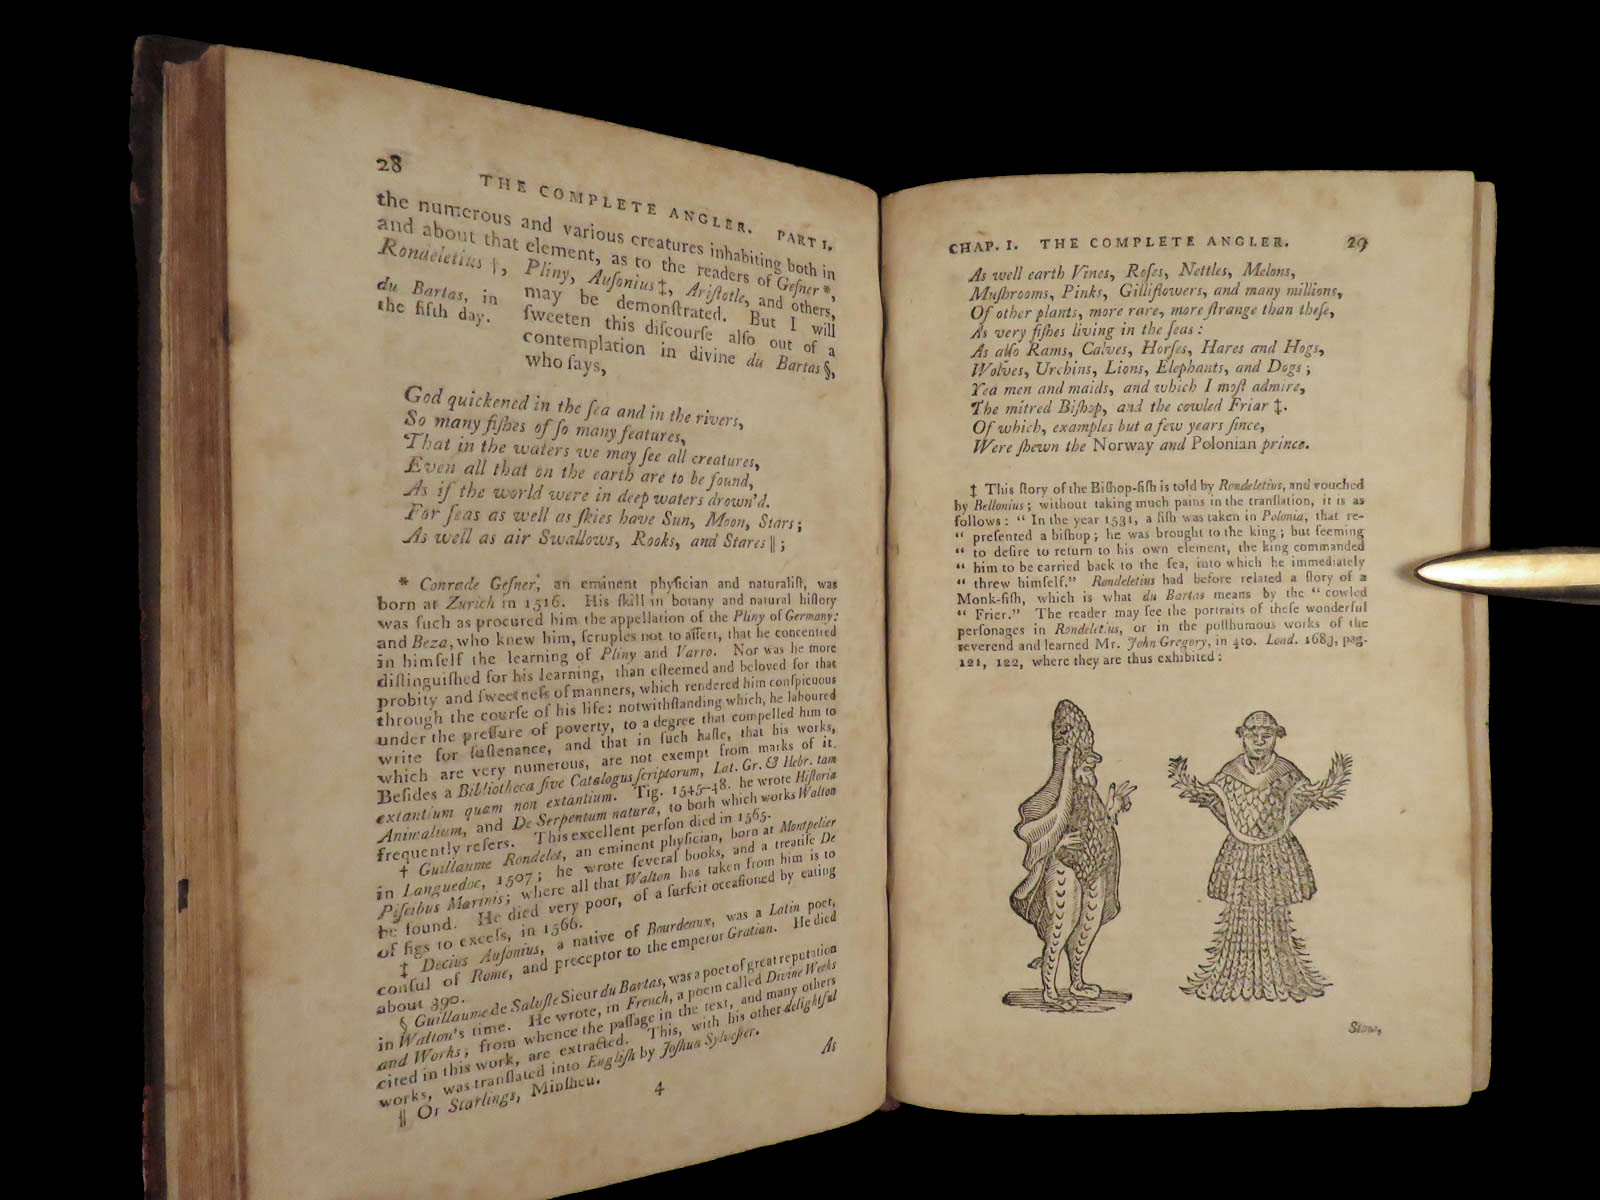 28
THE COMPLETE ANGLER. PART I.
the numerous and various creatures inhabiting both in
and about that element, as to the readers of Geſner *,
Rondeletius †, Pliny, Auſonius ‡, Ariſtotle, and others,
du Bartas, in
the fifth day.
may be demonſtrated. But I will
ſweeten this diſcourſe alſo out of a
contemplation in divine du Bartas §,
who ſays,
God quickened in the ſea and in the rivers,
So many fiſhes of ſo many features,
That in the waters we may ſee all creatures,
Even all that on the earth are to be found,
As if the world were in deep waters drown'd.
For ſeas as well as ſkies have Sun, Moon, Stars;
As well as air Swallows, Rooks, and Stares ‖;
* Conrade Geſner, an eminent phyſician and naturaliſt, was
born at Zurich in 1516. His ſkill in botany and natural hiſtory
was ſuch as procured him the appellation of the Pliny of Germany:
and Beza, who knew him, ſcruples not to aſſert, that he concentred
in himſelf the learning of Pliny and Varro. Nor was he more
diſtinguiſhed for his learning, than eſteemed and beloved for that
probity and ſweetneſs of manners, which rendered him conſpicuous
through the courſe of his life: notwithſtanding which, he laboured
under the preſſure of poverty, to a degree that compelled him to
write for ſuſtenance, and that in ſuch haſte, that his works,
which are very numerous, are not exempt from marks of it.
Beſides a Bibliotheca ſive Catalogus ſcriptorum, Lat. Gr. & Hebr. tam
extantium quam non extantium. Tig. 1545-48. he wrote Hiſtoria
Animalium, and De Serpentum natura, to both which works Walton
frequently refers. This excellent perſon died in 1565.
† Guillaume Rondelet, an eminent phyſician, born at Montpelier
in Languedoc, 1507; he wrote ſeveral books, and a treatiſe De
Piſcibus Marinis; where all that Walton has taken from him is to
be found. He died very poor, of a ſurfeit occaſioned by eating
of figs to exceſs, in 1566.
‡ Decius Auſonius, a native of Bourdeaux, was a Latin poet,
conſul of Rome, and preceptor to the emperor Gratian. He died
about 390.
§ Guillaume de Saluſte Sieur du Bartas, was a poet of great reputation
in Walton's time. He wrote, in French, a poem called Divine Weeks
and Works; from whence the paſſage in the text, and many others
cited in this work, are extracted. This, with his other delightful
works, was tranſlated into Engliſh by Joſhua Sylveſter.
‖ Or Starlings, Minſheu.
4
As
CHAP. I. THE COMPLETE ANGLER. 29
As well earth Vines, Roſes, Nettles, Melons,
Muſhrooms, Pinks, Gilliflowers, and many millions,
Of other plants, more rare, more ſtrange than theſe,
As very fiſhes living in the ſeas:
As alſo Rams, Calves, Horſes, Hares and Hogs,
Wolves, Urchins, Lions, Elephants, and Dogs;
Yea men and maids, and which I moſt admire,
The mitred Biſhop, and the cowled Friar ‡.
Of which, examples but a few years ſince,
Were ſhewn the Norway and Polonian prince.
‡ This ſtory of the Biſhop-fiſh is told by Rondeletius, and vouched
by Bellonius; without taking much pains in the tranſlation, it is as
follows: “ In the year 1531, a fiſh was taken in Polonia, that re-
“ preſented a biſhop; he was brought to the king; but ſeeming
“ to deſire to return to his own element, the king commanded
“ him to be carried back to the ſea, into which he immediately
“ threw himſelf.” Rondeletius had before related a ſtory of a
Monk-fiſh, which is what du Bartas means by the “ cowled
“ Frier.” The reader may ſee the portraits of theſe wonderful
perſonages in Rondeletius, or in the poſthumous works of the
reverend and learned Mr. John Gregory, in 4to. Lond. 1683, pag.
121, 122, where they are thus exhibited: